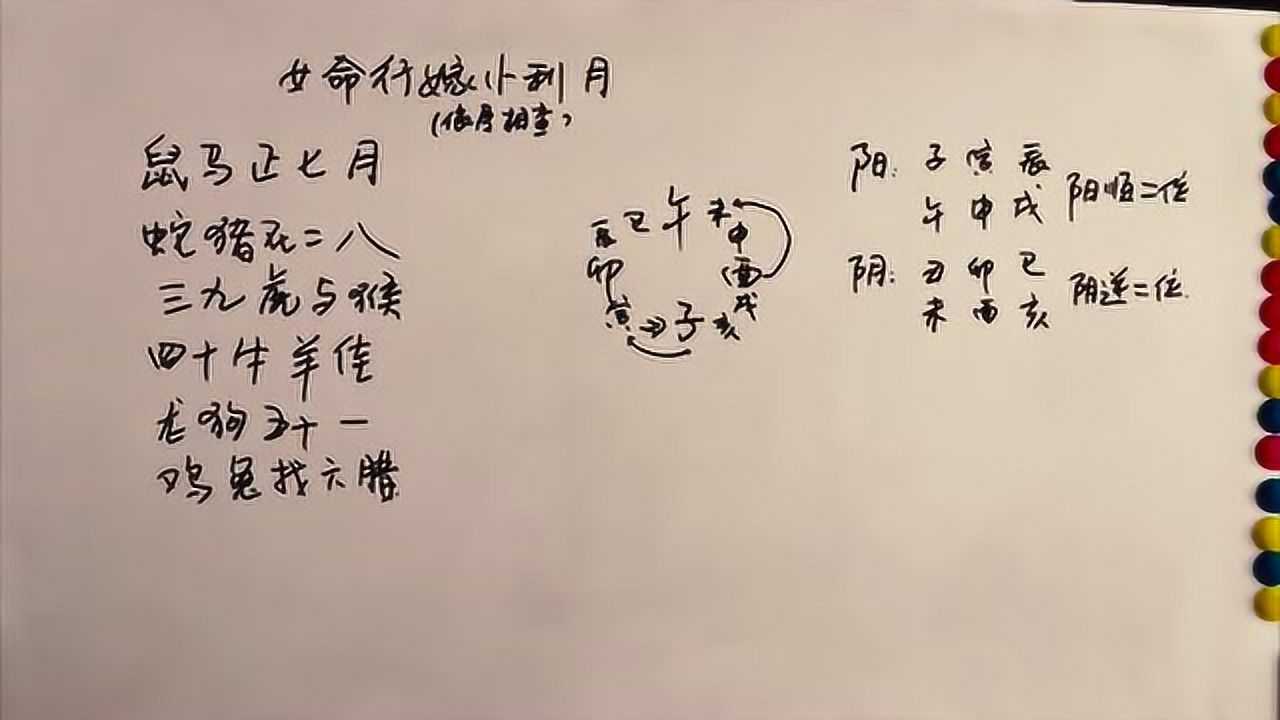 女命行嫁小利月
(依序相查)
鼠马正七月
蛇猪在二八
三九虎与猴
四十牛羊佳
龙狗五十一
鸡兔找六腊
辰巳午未申
卯 酉
寅 子亥戌
阳: 子寅辰
午申戌
阳顺二位
阴: 丑卯巳
未酉亥
阴逆二位